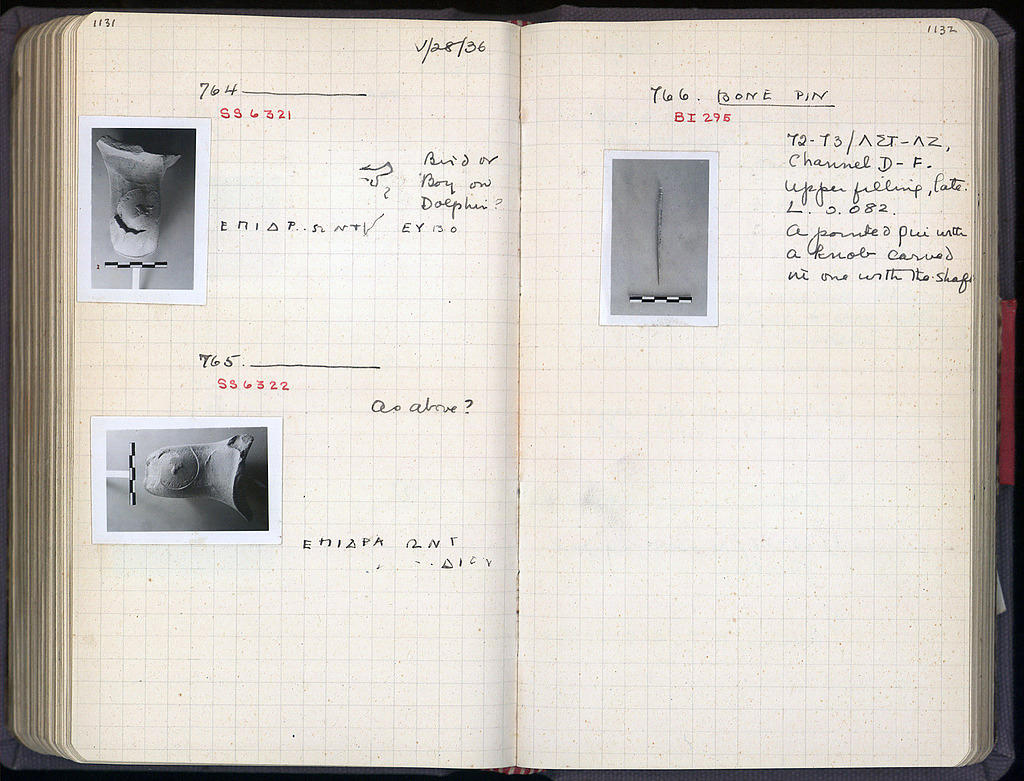 1131
V/28/36
764
SS 6321
Bird or
Boy on
Dolphin?
ΕΠΙΔΡ..ΩΝΤ ΕΥ
765.
SS 6322
as above?
ΕΠΙΔΡΑ ΩΝΤ
1132
766. BONE PIN
BI 295
72-73/ΛΣΤ-ΛΖ,
Channel D-F.
Upper filling, late.
L. 0.082.
A pointed pin with
a knob carved
in one with the shaft